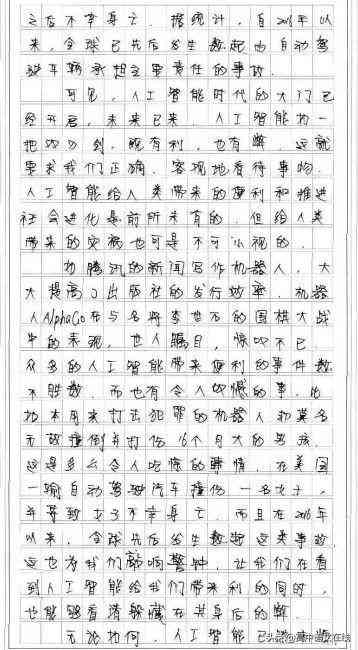 之后不幸身亡。据统计,自2016年以
来,全球已先后发生数起由自动驾
驶车辆承担主要责任的事故。
可见,人工智能时代的大门已
经开启,未来已来。人工智能如一
把切刀,既有利,也有弊,这就
要求我们正确、客观地看待事物。
人工智能给人类带来的便利和推进
社会进化是前所未有的,但给人类
带来的灾祸也可是不可小视的。
如腾讯的新闻写作机器人,大
大提高了出版社的发行效率,机器
人AlphaGo在与名将李世石的围棋大战
中的表现,世人瞩目,惊叹不已
众多的人工智能带来便利的事件数
不胜数,而也有令人惊憾的事,比
如本用来打击犯罪的机器人却莫名
无故撞倒并打伤16个月大的男孩。
这是多么令人吃惊的事情,在美国
一辆自动驾驶汽车撞伤一名女子,
并导致女子不幸身亡。而且在2016年
以来,全球先后发生数起这类事故
这也为我们敲响警钟,让我们在看
到人工智能给我们带来利的同时,
也能够看清躲藏在其身后的弊。
无论如何,人工智能已
头条@高中语文在线